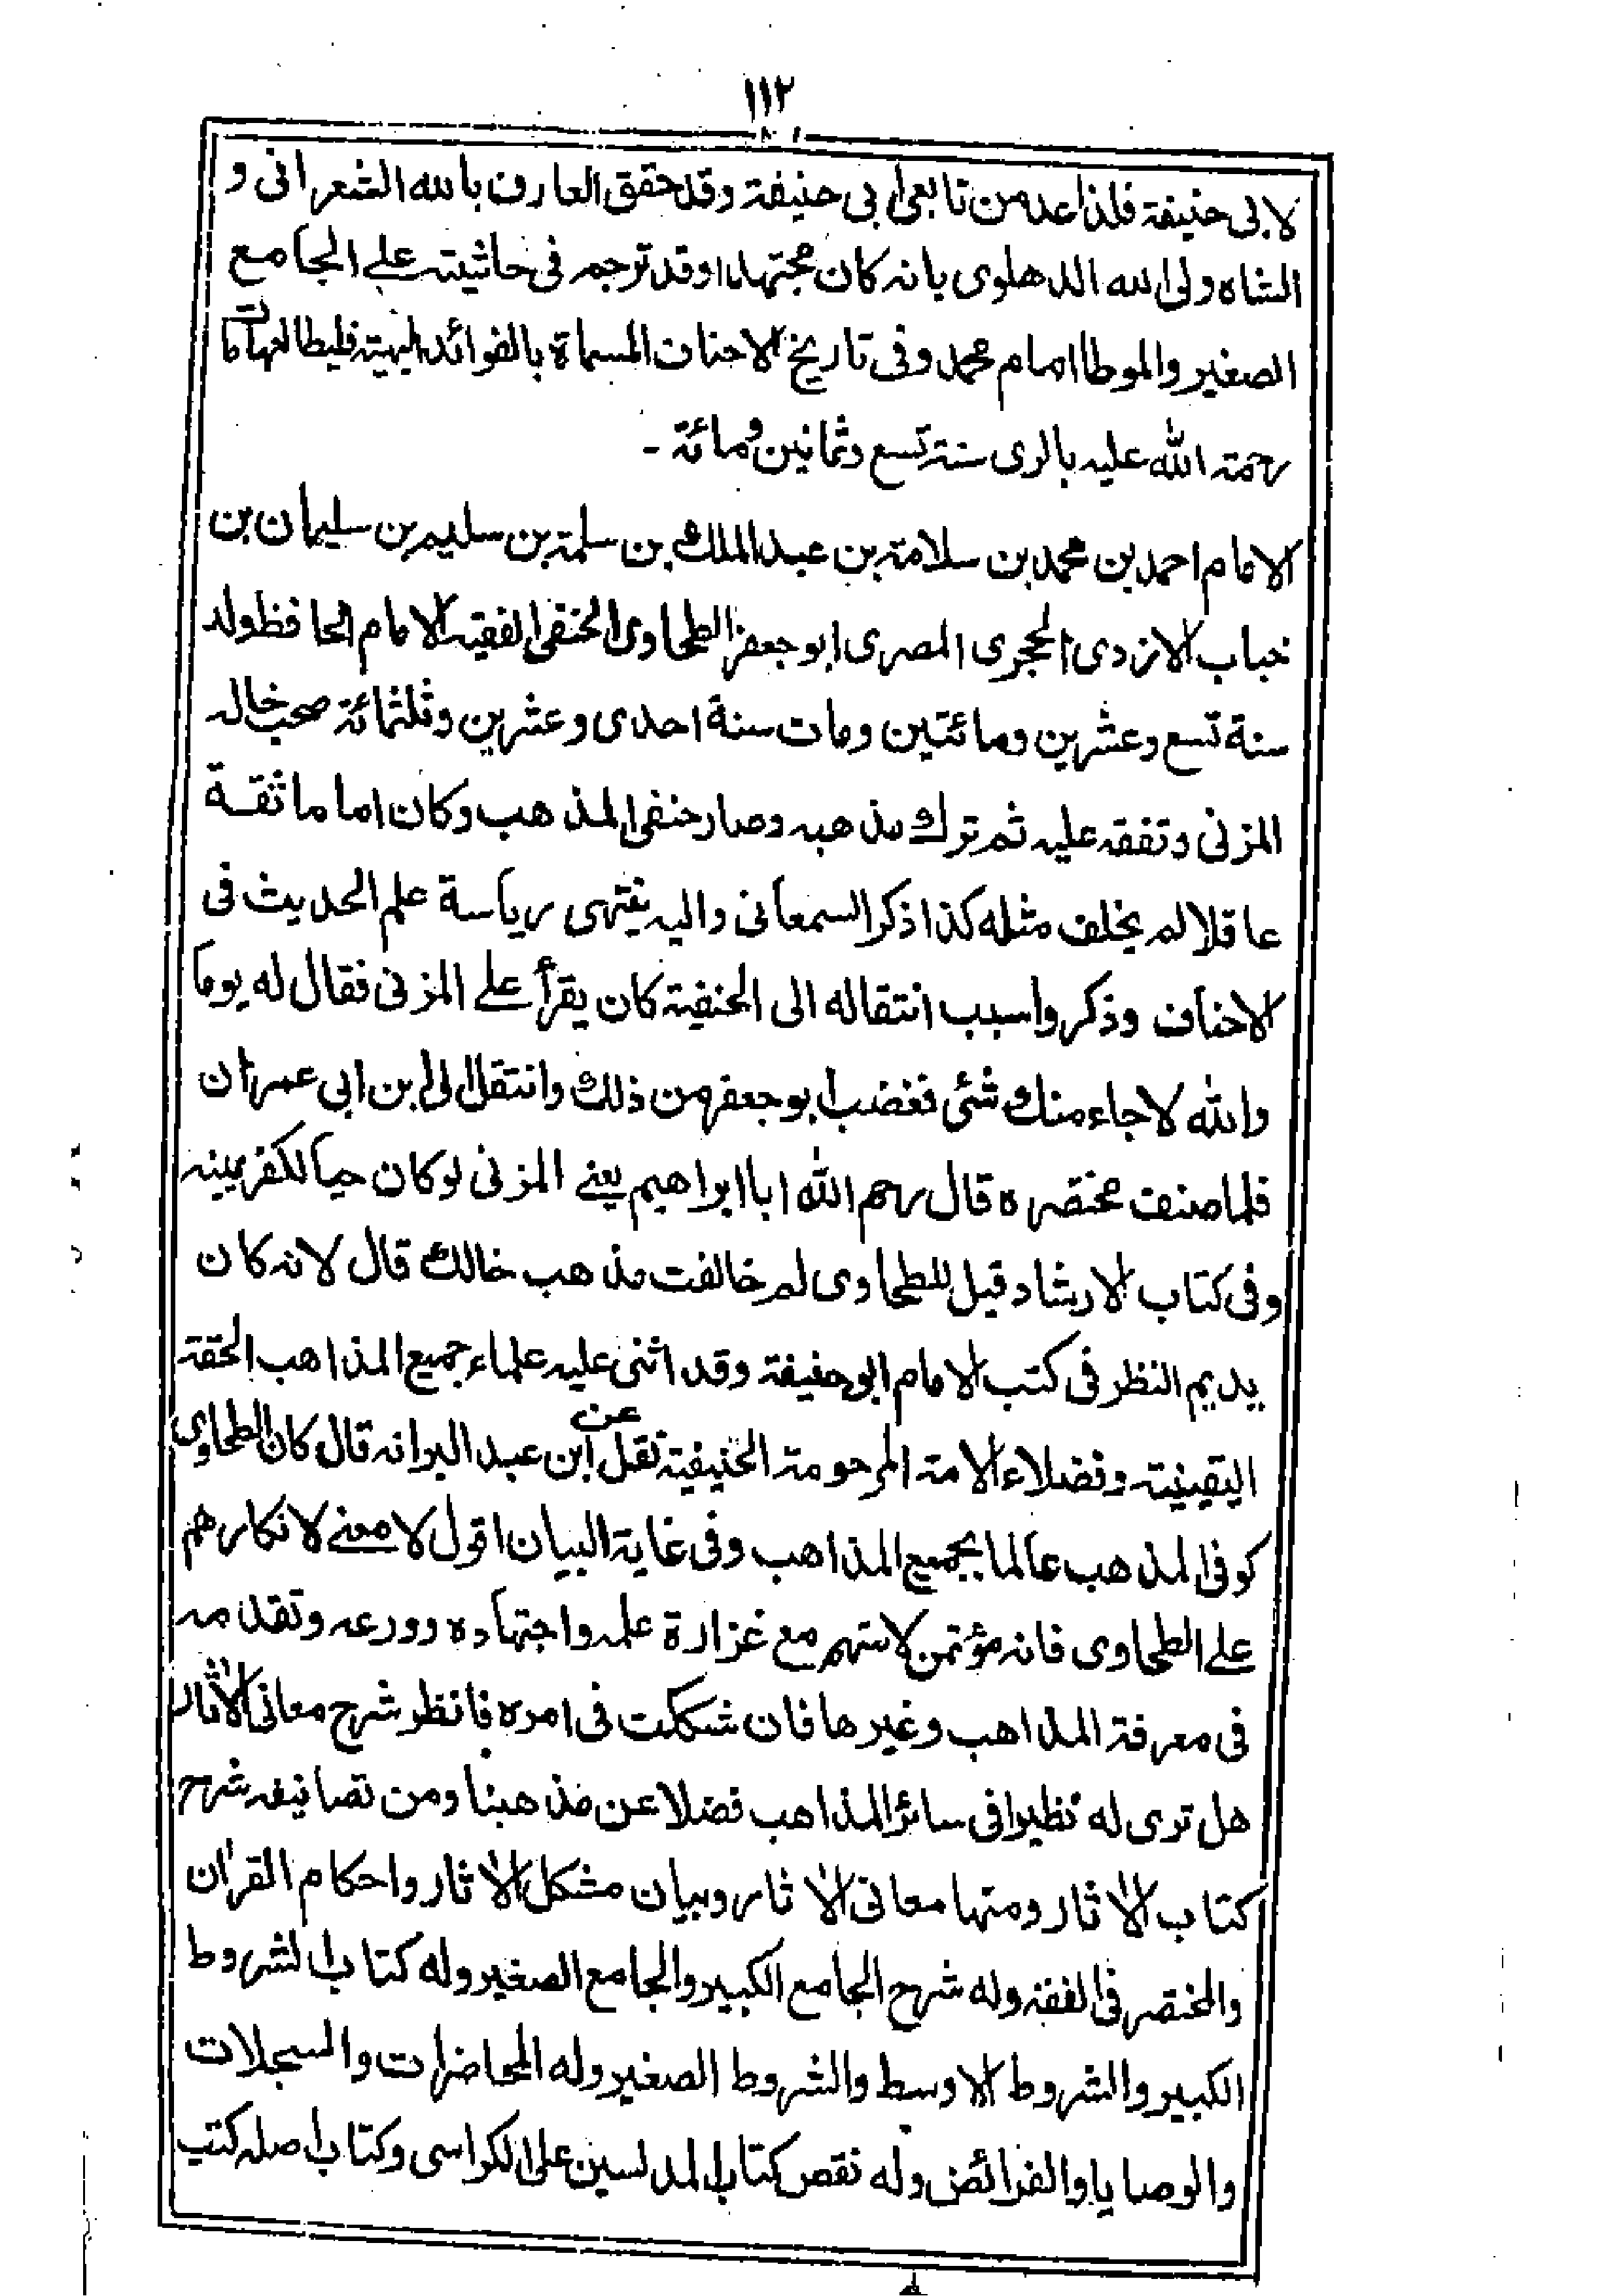 ١١٢
لابی حنیفة فلذا عده من تابعی ابی حنیفة وقد حقق العارف بالله الشعرانی و
الشاه ولی الله الدهلوی بانه کان مجتهدا وقد ترجمہ فی حاشیتہ علے الجامع
الصغیر والموطا امام محمد وفی تاریخ الاحناف المسماة بالفوائد البهیتہ فلیطالعها مات
رحمتہ الله علیہ بالری سنتہ تسع وثمانین ومائة -
الامام احمد بن محمد بن سلامتہ بن عبد الملك بن سلمتہ بن سلیم بن سلیمان بن
خباب الازدی الحجری المصری ابو جعفر الطحاوی الحنفی الفقیہ الامام الحافظ ولد
سنة تسع وعشرین ومائتین ومات سنة احدی وعشرین وثلثمائة صحب خالہ
المزنی وتفقہ علیہ ثم ترك مذهبہ وصار حنفی المذهب وکان اماما ثقة
عاقلا لم یخلف مثله کذا ذکر السمعانی والیہ ینتهی ریاسة علم الحدیث فی
الاحناف وذکروا سبب انتقاله الی الحنفیة کان یقرأ علے المزنی فقال له یوما
والله لا جاء منك شئی فغضب ابو جعفر من ذلك وانتقل الی ابن ابی عمران
فلما صنف مختصره قال رحم الله ابا ابراهیم یعنے المزنی لو کان حیا لکفر یمینہ
وفی کتاب الارشاد قیل للطحاوی لم خالفت مذهب خالك قال لانہ کان
یدیم النظر فی کتب الامام ابو حنیفة وقد اثنی علیہ علماء جمیع المذاهب الحقة
الیقینیتہ وفضلاء الامتہ المرحومتہ الحنیفیة نقل عن ابن عبد البر انہ قال کان الطحاوی
کوفی المذهب عالما بجمیع المذاهب وفی غایة البیان اقول لا معنے لانکارهم
علے الطحاوی فانہ مؤتمن لا متهم مع غزارة علمہ واجتهاده وورعہ وتقدمہ
فی معرفة المذاهب وغیرها فان شککت فی امره فانظر شرح معانی الآثار
هل تری له نظیرا فی سائر المذاهب فضلا عن مذهبنا ومن تصانیفہ شرح
کتاب الآثار ومنها معانی الآثار وبیان مشکل الآثار واحکام القرآن
والمختصر فی الفقہ وله شرح الجامع الکبیر والجامع الصغیر وله کتاب الشروط
الکبیر والشروط الاوسط والشروط الصغیر وله المحاضرات والسجلات
والوصایا والفرائض وله نقص کتاب المدلسین علی الکراسی وکتاب اصلہ کتب